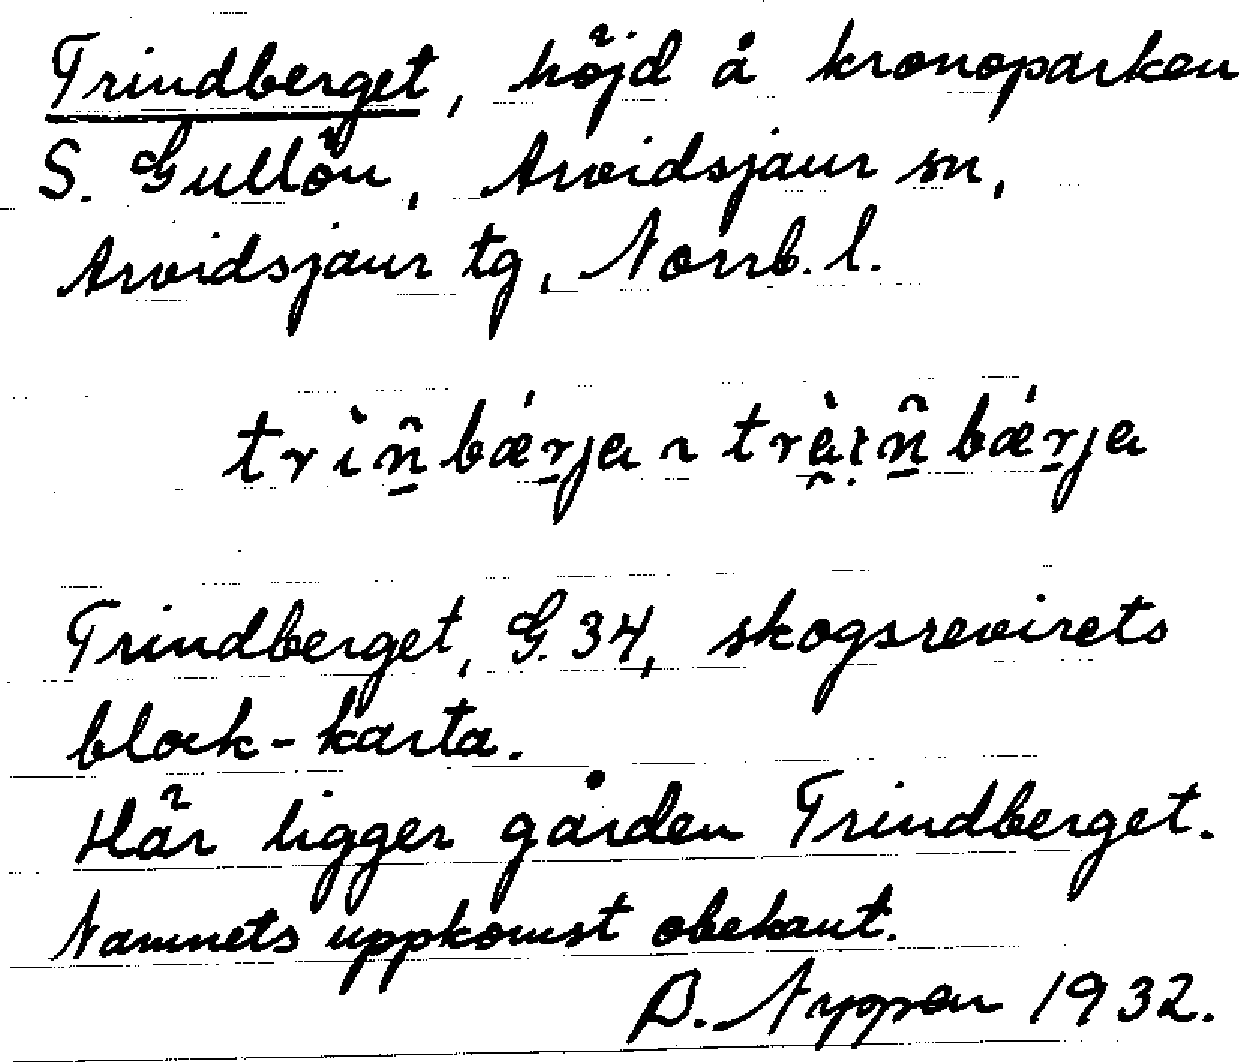 Trindberget, höjd å kronoparken
S. Gullön, Arvidsjaur sn,
Arvidsjaur tg, Norrb. l.
trìṉ̂bǽṟja ~ trà̯ịṉ̂bǽṟja
Trindberget, G. 34, skogsrevirets
block-karta.
Här ligger gården Trindberget.
Namnets uppkomst obekant.
1932.